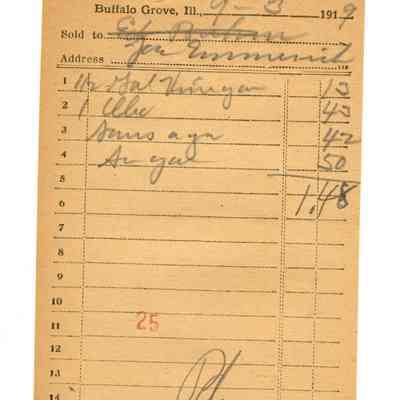 Buffalo Grove, Ill., 9-3 1919
Sold to
Joe Emmerich
Address
1 1/2 Gal Vinegar 13
2 1 43
3 42
4 Sugar 50
5
6 1.48
7
8
9
10
11 25
12
13
14